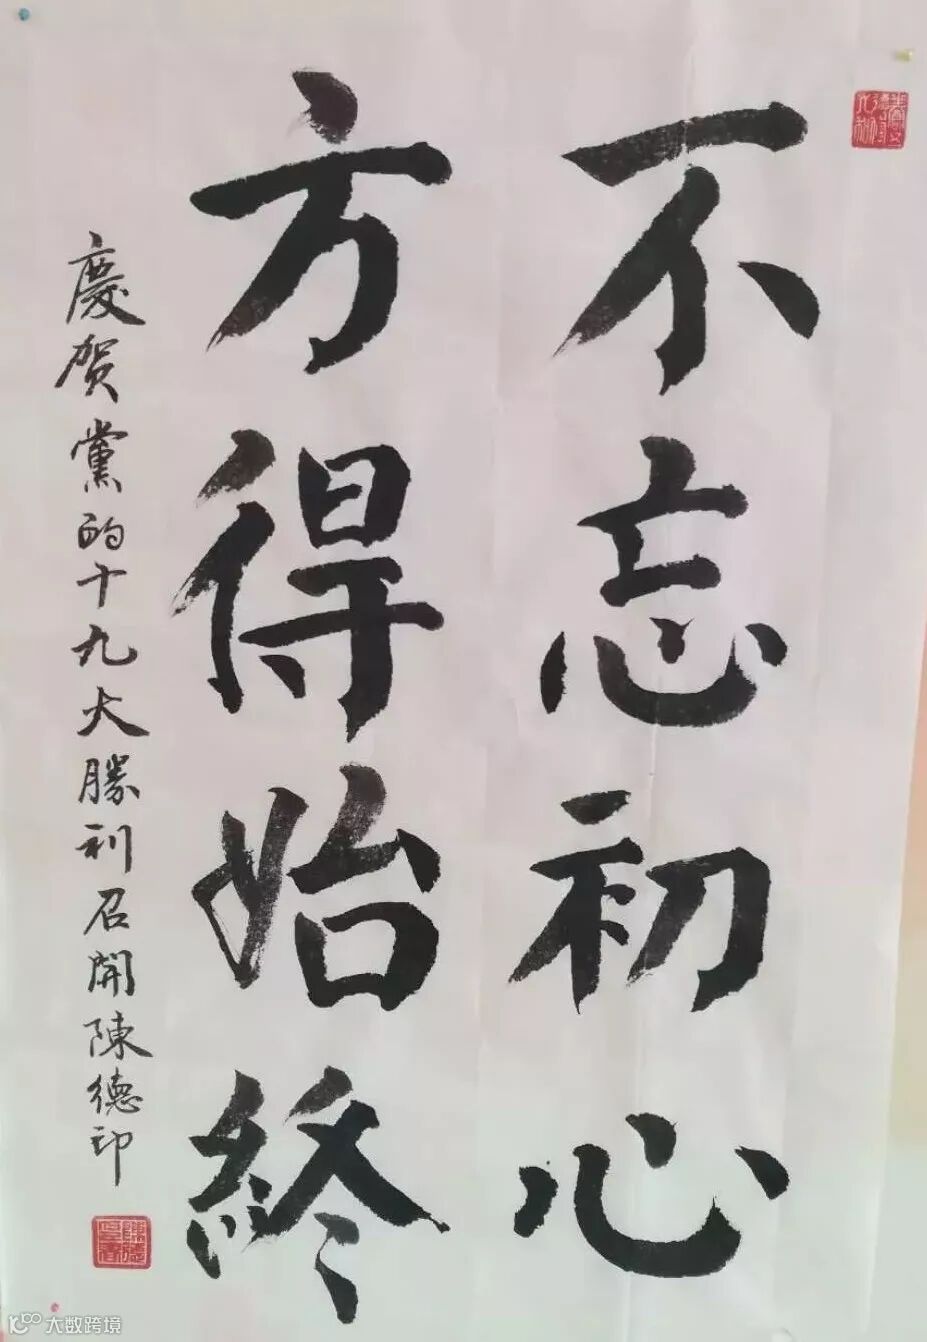 不忘初心
方得始終
慶贺黨的十九大勝利召開陳德印
大数跨境